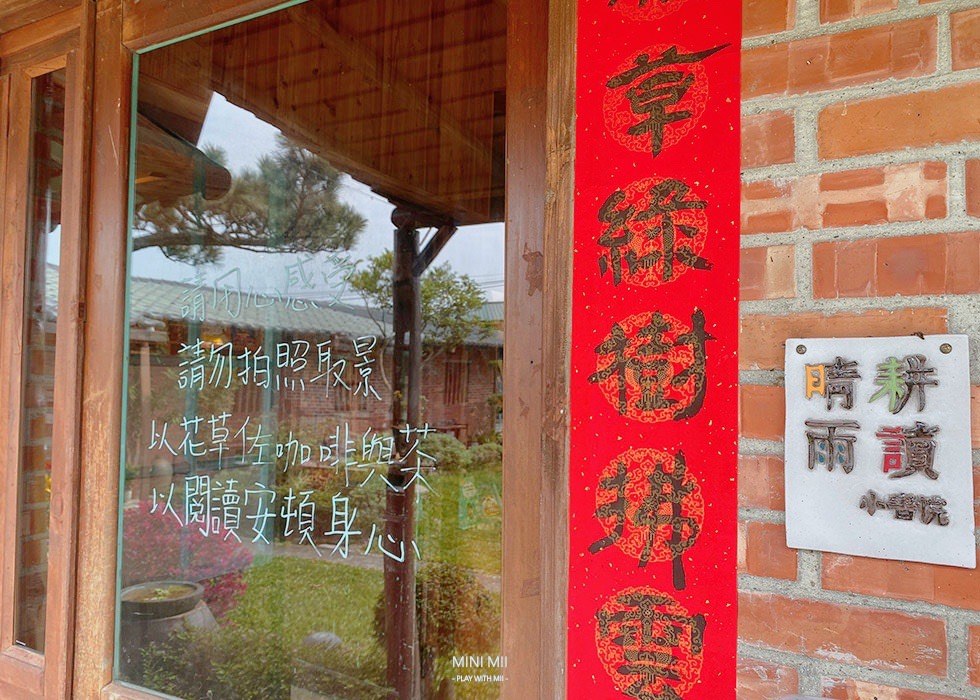 請用心感受
請勿拍照取景
以花草佐咖啡與茶
以閱讀安頓身心
草綠樹雲
晴耕
雨讀
小書院
MINI MII
- PLAY WITH MII -